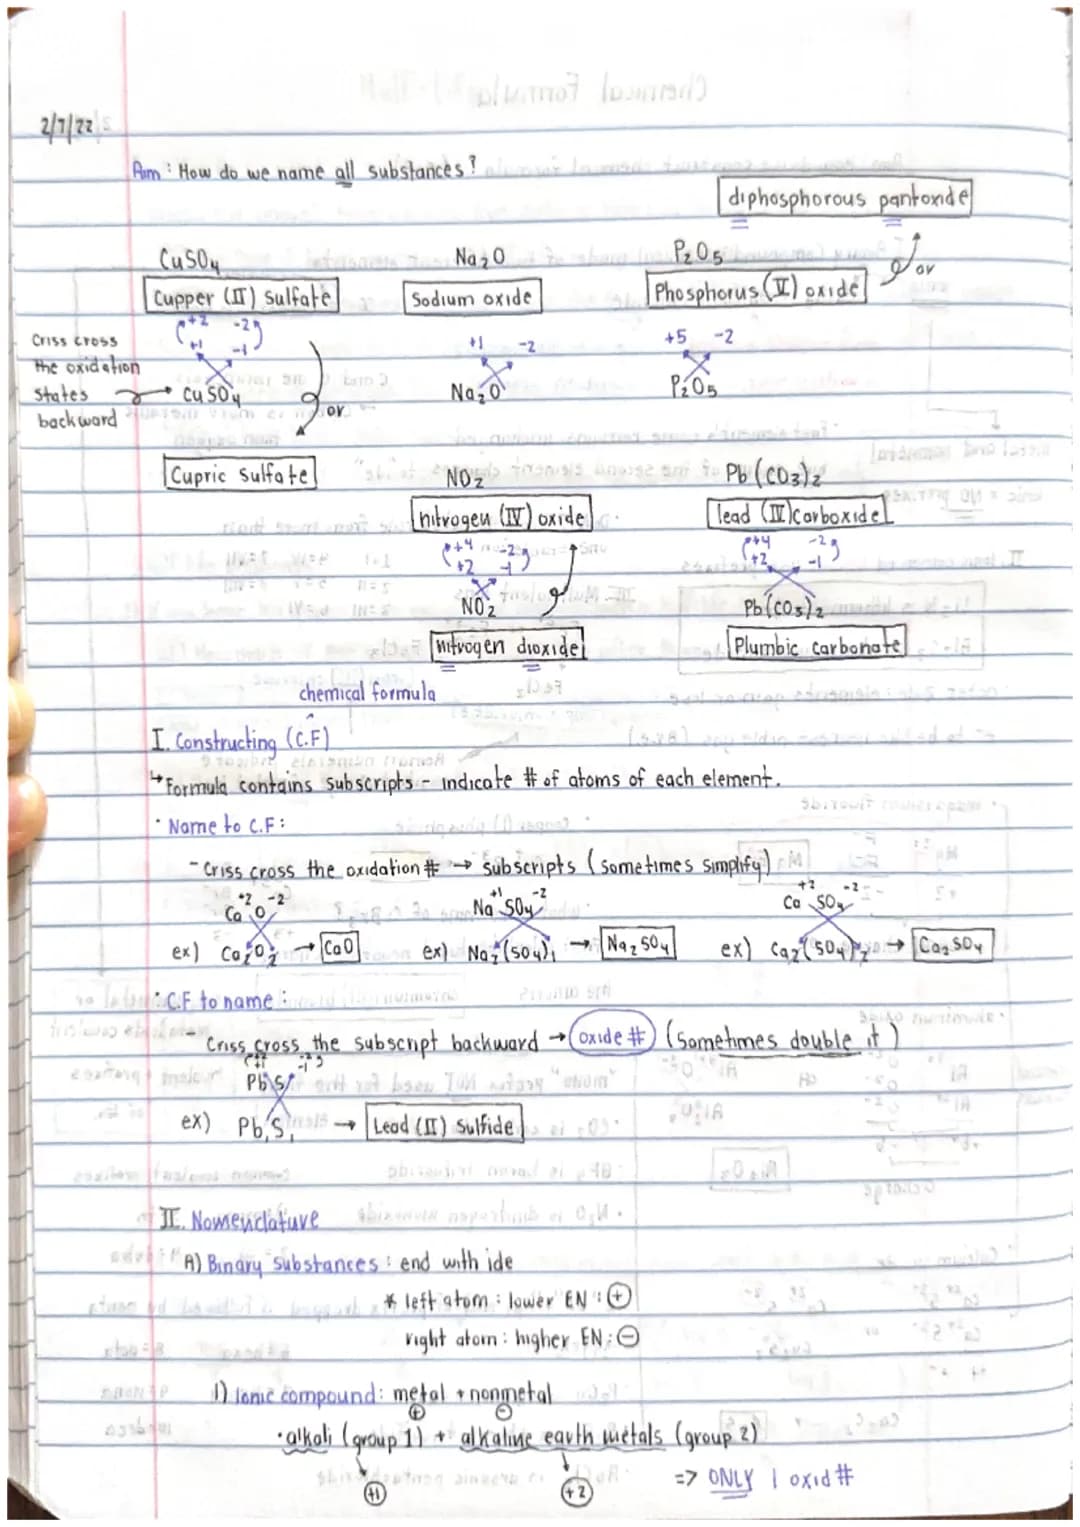 2/7/22
Aim : How do we name all substances?
diphosphorous pantoxide
CuSO4
Na2O
P2O5
or
Cupper (II) Sulfate
Sodium oxide
Phosphorus (V) oxide
+2 -2
+1 -1
+1 -2
+5 -2
Criss cross
the oxidation
states
backward
CuSO4
Na2O
P2O5
or
Cupric sulfate
NO2
Pb(CO3)2
nitrogen (IV) oxide
lead (IV) carboxide
+4 -2
+2 -1
+4 -2
+2 -1
NO2
Pb(CO3)2
nitrogen dioxide
Plumbic carbonate
chemical formula
I. Constructing (C.F)
↳ Formula contains subscripts - indicate # of atoms of each element.
· Name to C.F :
- Criss cross the oxidation # → subscripts (sometimes simplify)
+2 -2
Ca O
+1 -2
Na SO4
+2 -2
Ca SO4
ex) Ca2O2 → CaO
ex) Na2(SO4)1 → Na2SO4
ex) Ca2(SO4)2 → Ca2SO4
· C.F to name :
Criss cross the subscript backward → oxide # (sometimes double it)
Pb S
ex) Pb1S1 → Lead (II) Sulfide
II. Nomenclature
A) Binary substances : end with ide
* left atom : lower EN : ⊕
right atom : higher EN : ⊖
1) Ionic compound : metal + nonmetal
⊕ ⊖
· alkali (group 1) + alkaline earth metals (group 2)
+1 +2
=> ONLY 1 oxid #